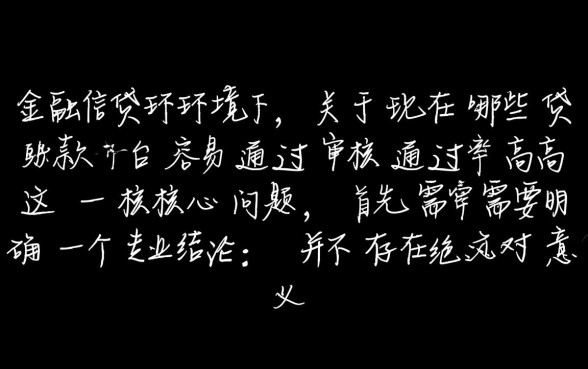 金融信贷环环境下，关于现在哪些贷
款平台容易通过审核通过率高高
这一核核心问题，首先需需要明
确一个专业结论：并不存在绝对意
义